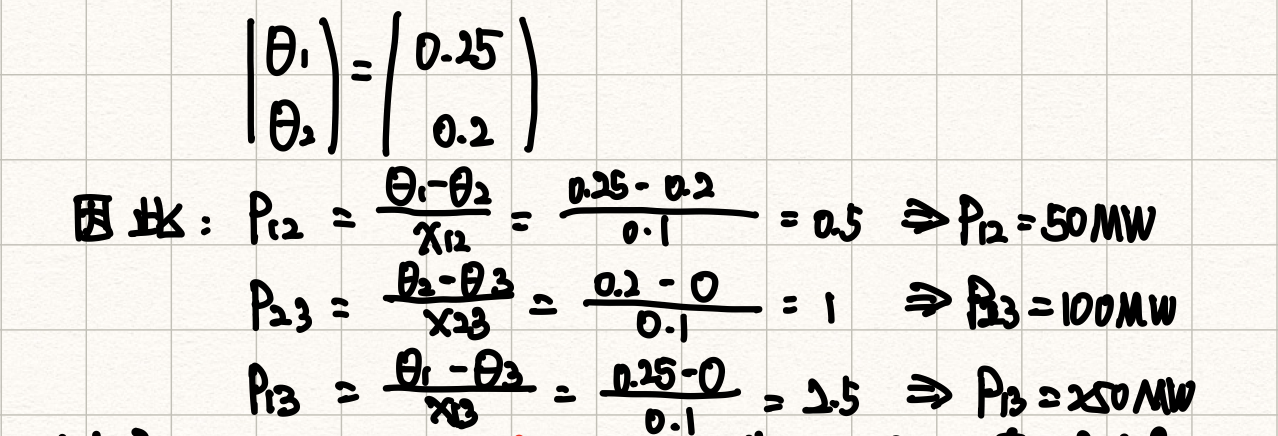 (θ₁ θ₂) = (0.25 0.2)
因此: P₁₂ = (θ₁-θ₂)/x₁₂ = (0.25-0.2)/0.1 = 0.5 ⇒ P₁₂ = 50MW
P₂₃ = (θ₂-θ₃)/x₂₃ = (0.2-0)/0.1 = 1 ⇒ P₂₃ = 100MW
P₁₃ = (θ₁-θ₃)/x₁₃ = (0.25-0)/0.1 = 2.5 ⇒ P₁₃ = 250MW